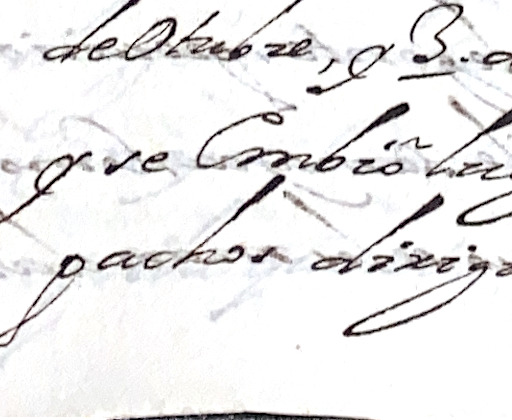 de Otubre, y 3. d
q se Embió lug
pachos dirigi